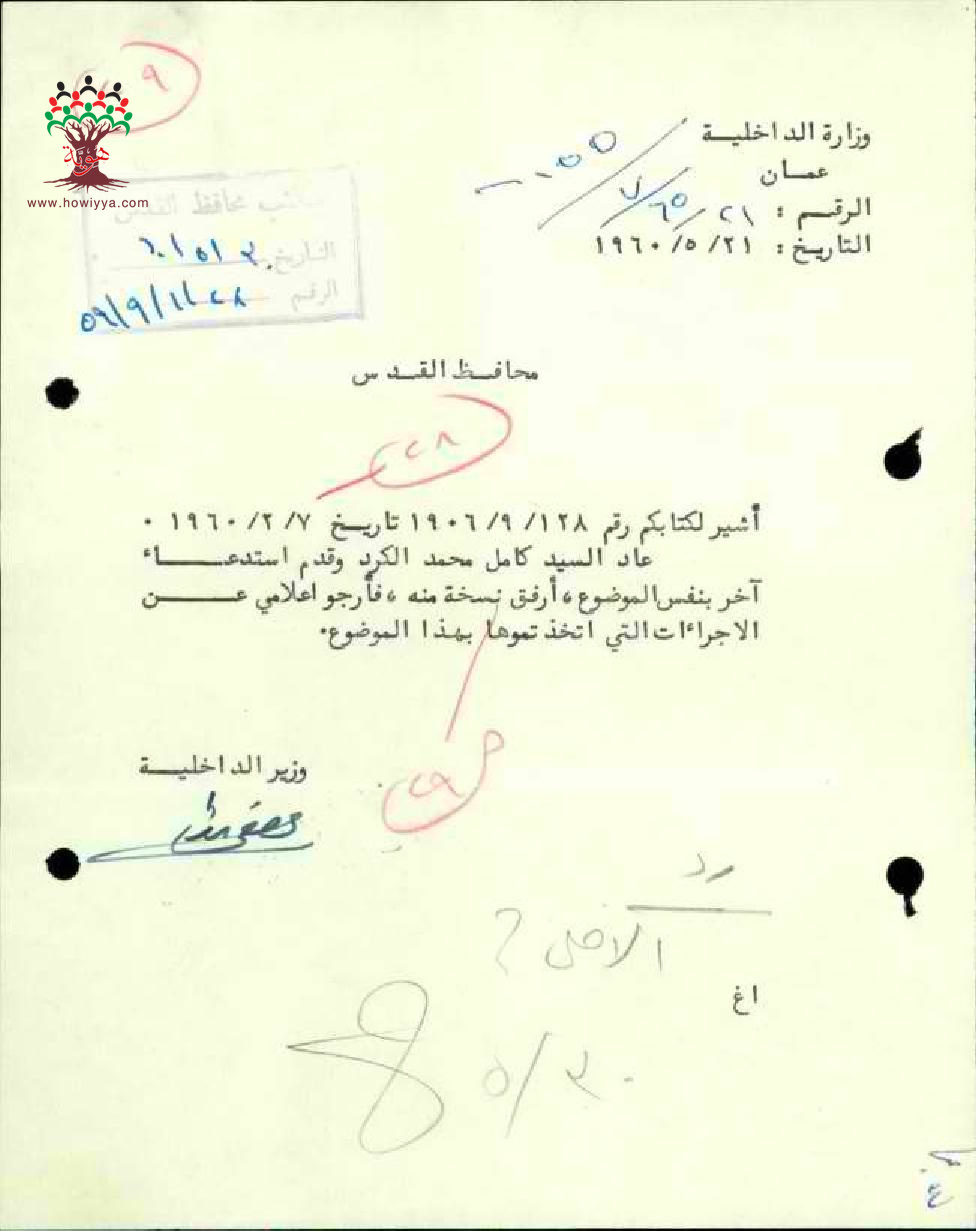 وزارة الداخلية
عمان
الرقم : ٢١/٦٥/٧
التاريخ : ٢١/ ٥/ ١٩٦٠
هوية
www.howiyya.com
مكتب محافظ القدس
التاريخ ٦٠/٥/٣٠
الرقم
محافظ القدس
٢٨
أشير لكتابكم رقم ١٢٨/ ٩/ ١٩٠٦ تاريخ ٧/ ٢/ ١٩٦٠ ٠
عاد السيد كامل محمد الكرد وقدم استدعاء
آخر بنفس الموضوع ، أرفق نسخة منه ، فأرجو اعلامي عن
الاجراءات التي اتخذتموها بهذا الموضوع٠
وزير الداخلية
رد
اغ
٥/٣٠